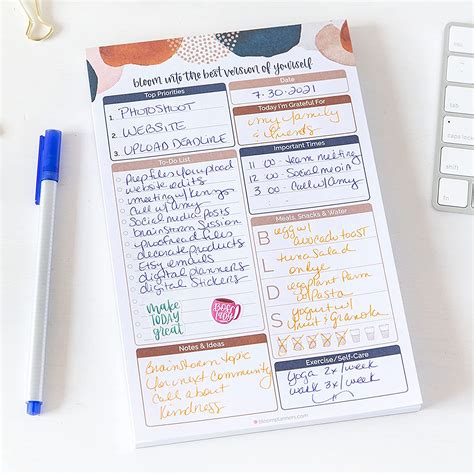 bloom into the best version of yourself
Top Priorities
1. PHOTOSHOOT
2. WEBSITE
3. UPLOAD DEADLINE
To-Do List
Prep files for upload
website edits
meeting w/ kings
call w/ amy
social media posts
brainstorm session
proofread files
decorate products
Etsy emails
digital planners
digital stickers
make
today
great
BOSS
LADY
Notes & Ideas
Brainstorm topic
for next community
call about
kindness
Date
7.30.2021
Today I'm Grateful For
my family
& friends
Important Times
11:00 team meeting
12:00 social media
3:00 call w/ amy
Meals, Snacks & Water
B egg w/
avocado toast
L tuna salad
on rye
D eggplant parm
w/ pasta
S yogurt w/
fruit & granola
Exercise/Self-Care
yoga 2x/week
walk 3x/week
bloomplanners.com